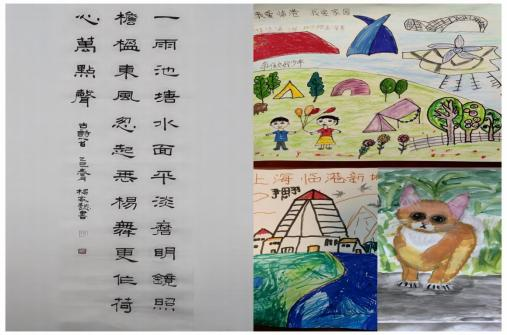 一雨池塘水面平淡磨明鏡照
檐楹東風忽起垂楊舞更作荷
心萬點聲
古詩 書
我爱临港 我爱家园
上海临港新